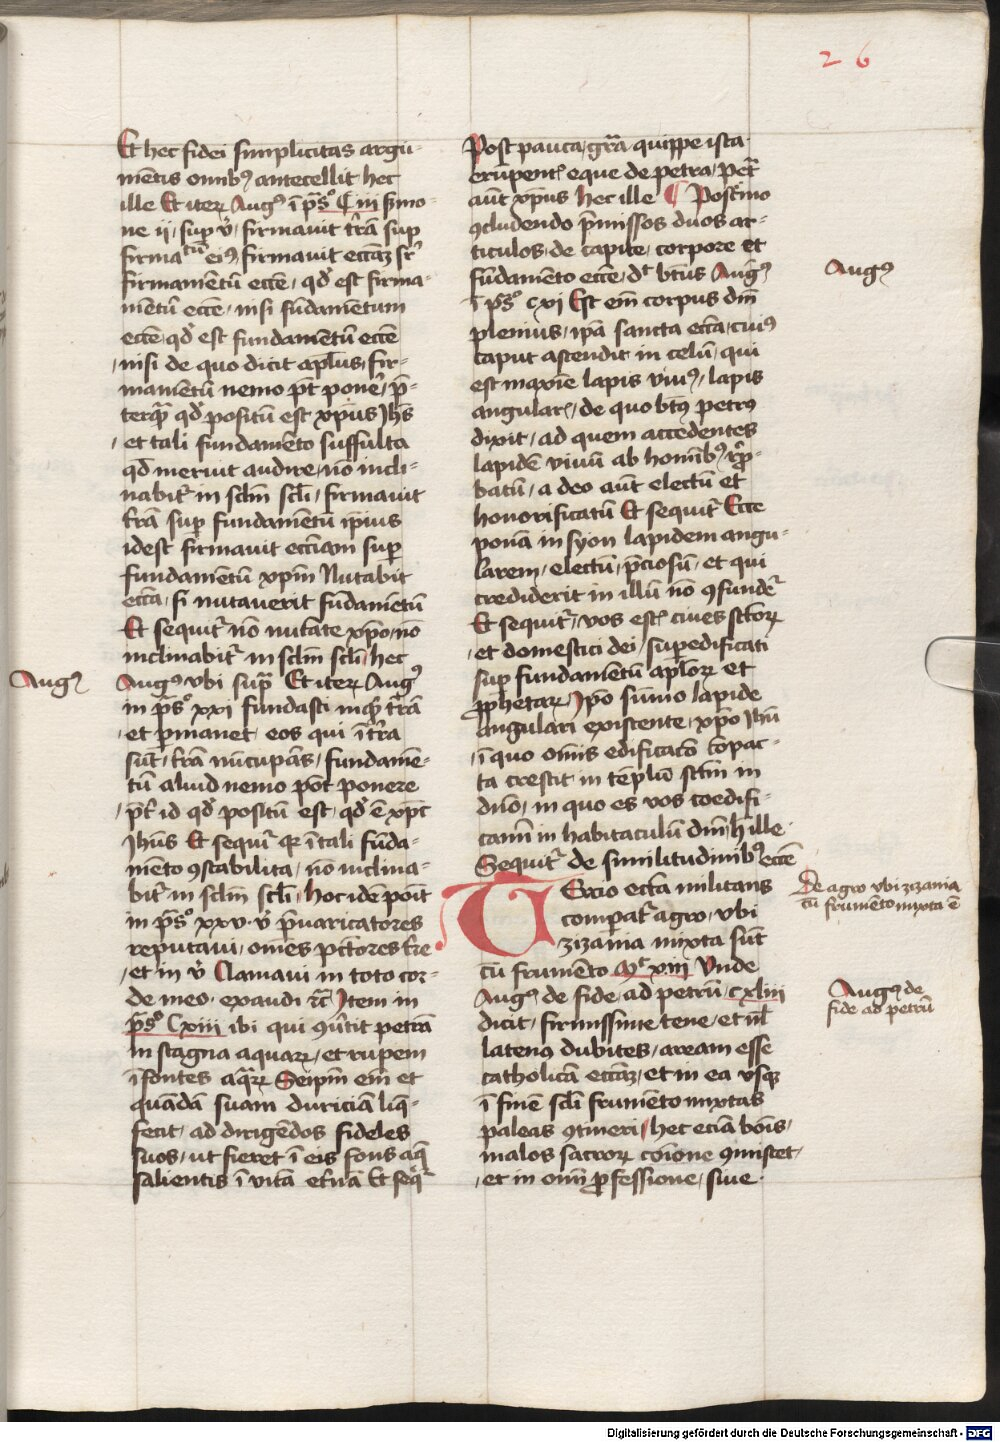 26
Et hec fidei simplicitas argu-
mētis omībꝰ antecellit hec
ille Et iteꝝ Augꝰ ī p̄sͦ Ciii sermo-
ne ii, sup v̄, firmauit t̄rā sup
firmatū eiꝰ, firmauit ecc̄az sr̄
firmamētū ecc̄e, qd̓ est firma-
mētū ecc̄e, nisi fūdamētum
ecc̄e, qd̓ est fundamētū ecc̄e
nisi de quo dicit apl̄us, fir-
mamētū nemo p̄t ponēr, p̄-
terq̄ qd̓ positū est xp̄us Jhs̄
et tali fundamēto suffulta
qd̓ meruit audire, nō incli-
nabit᷑ in scl̄m scl̄i, firmauit
t̄rā sup fundamētū ip̄ius
idest firmauit ecc̄iam sup
fundamētū xp̄m Nutabit
ecc̄a, si nutauerit fūdamētū
Et sequit᷑ nō nutāte xp̄o, nō
inclinabit᷑ in scl̄m scl̄i, hec
Augꝰ vbi supͣ Et iteꝝ Augꝰ
in p̄sͦ xxi fundasti inqͥ t̄rā
et pmanet, eos qui ī t̄rā
sūt, t̄rā nūcupās, fundamē-
tū aliud nemo pōt ponere
p̄t᷑ id qd̓ positū est, qd̓ ē xp̄c
Jhūs Et sequit᷑ qꝛ ī tali fūda-
mēto ꝯstabilita, nō inclina-
bit᷑ in scl̄m scl̄i, hoc idē pōit
in p̄sͦ xxv. v̄ p̄uaricatores
reputaui, omēs pctores t̄re
et in v̄ Clamaui in toto cor-
de meo, exaudi r̄c̄ Item in
p̄sͦ Cxiii ibi qui ꝯūtit petrā
in stagna aquaꝝ, et rupem
ī fontes aqͣꝝ Seip̄m em̄ et
quādā suam duriciā liq̄-
fecit, ad dirigēdos fideles
suos, ut fieret ī eis fons aq̄
salientis ī vitā et̄nā Et seqͥ᷑
Augꝰ
Post pauca, gr̄a quippe ista
erūpent᷑ eque de petra, pet᷑
aūt xp̄us hec ille ¶ Post᷑mo
ꝯcludendo p̄missos duos ar-
ticulos, de capite, corpore et
fūdamēto ecc̄e, dt᷑ btūs Augꝰ
ī p̄sͦ cxi Est em̄ corpus dm̄
plenius, ip̄a sancta ecc̄a, cuiꝰ
caput ascendit in celū, qui
est maxīe lapis viuꝰ, lapis
angular᷑, de quo btꝰ petrꝰ
dixit, ad quem accedentes
lapidē viuū ab homībꝰ rep̄-
batū, a deo aūt electū et
honorificatū Et sequit᷑ Ecce
ponā in syon lapidem angu-
larem, electū, p̄ciosū, et qui
crediderit in illū nō ꝯfundet᷑
Et sequit᷑, vos est᷑ ciues sctoꝝ
et domestici dei, supedificati
sup fundamētū ap̄loꝝ et
ꝓphetaꝝ, Ip̄o sūmo lapide
angulari existente, xp̄o Jhū
ī quo omīs edificatō cōpac-
ta crescit in tēplū sctm̄ in
dn̄o, in quo es vos coedifi-
camī in habitaculū dm̄, h̄ ille
Sequit᷑ de similitudinibꝰ ecc̄e
Tercio ecc̄a militans
compat᷑ agro, vbi
zizania mixta sūt
cū frumēto Mt᷑ xiii Vnde
Augꝰ de fide, ad petrū, cxliii
dicit, firmissime tene, et nl̄
latenꝰ dubites, aream esse
catholicā ecc̄az, et in ea vsqꝫ
ī finē scl̄i frumēto mixtas
paleas ꝯtineri, hec eciā bōis,
malos sacroꝝ cōione ꝯmiscet,
et in omī ꝓfessione, siue
Augꝰ
De agro vbi zizania
cū frumēto mixta ē
Augꝰ de
fide ad petrū
Digitalisierung gefördert durch die Deutsche Forschungsgemeinschaft - DFG